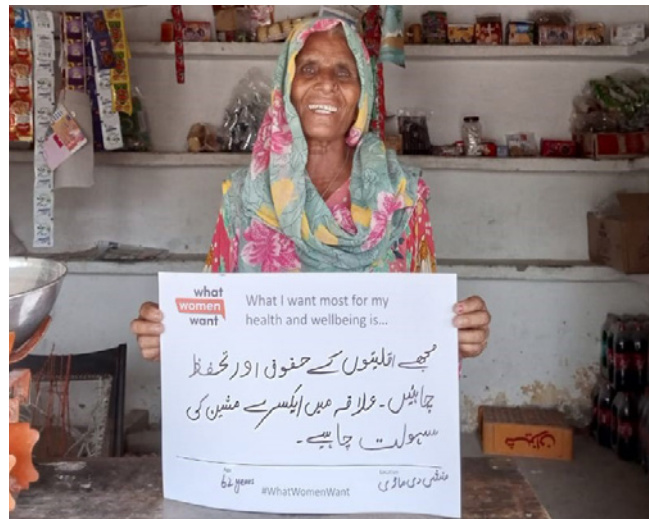 what
women
want
What I want most for my
health and wellbeing is...
مجھے اقلیتوں کے حقوق اور تحفظ
چاہئیں۔ علاقہ میں ایکسرے مشین کی
سہولت چاہیے۔
Age
62 years
#WhatWomenWant
Location